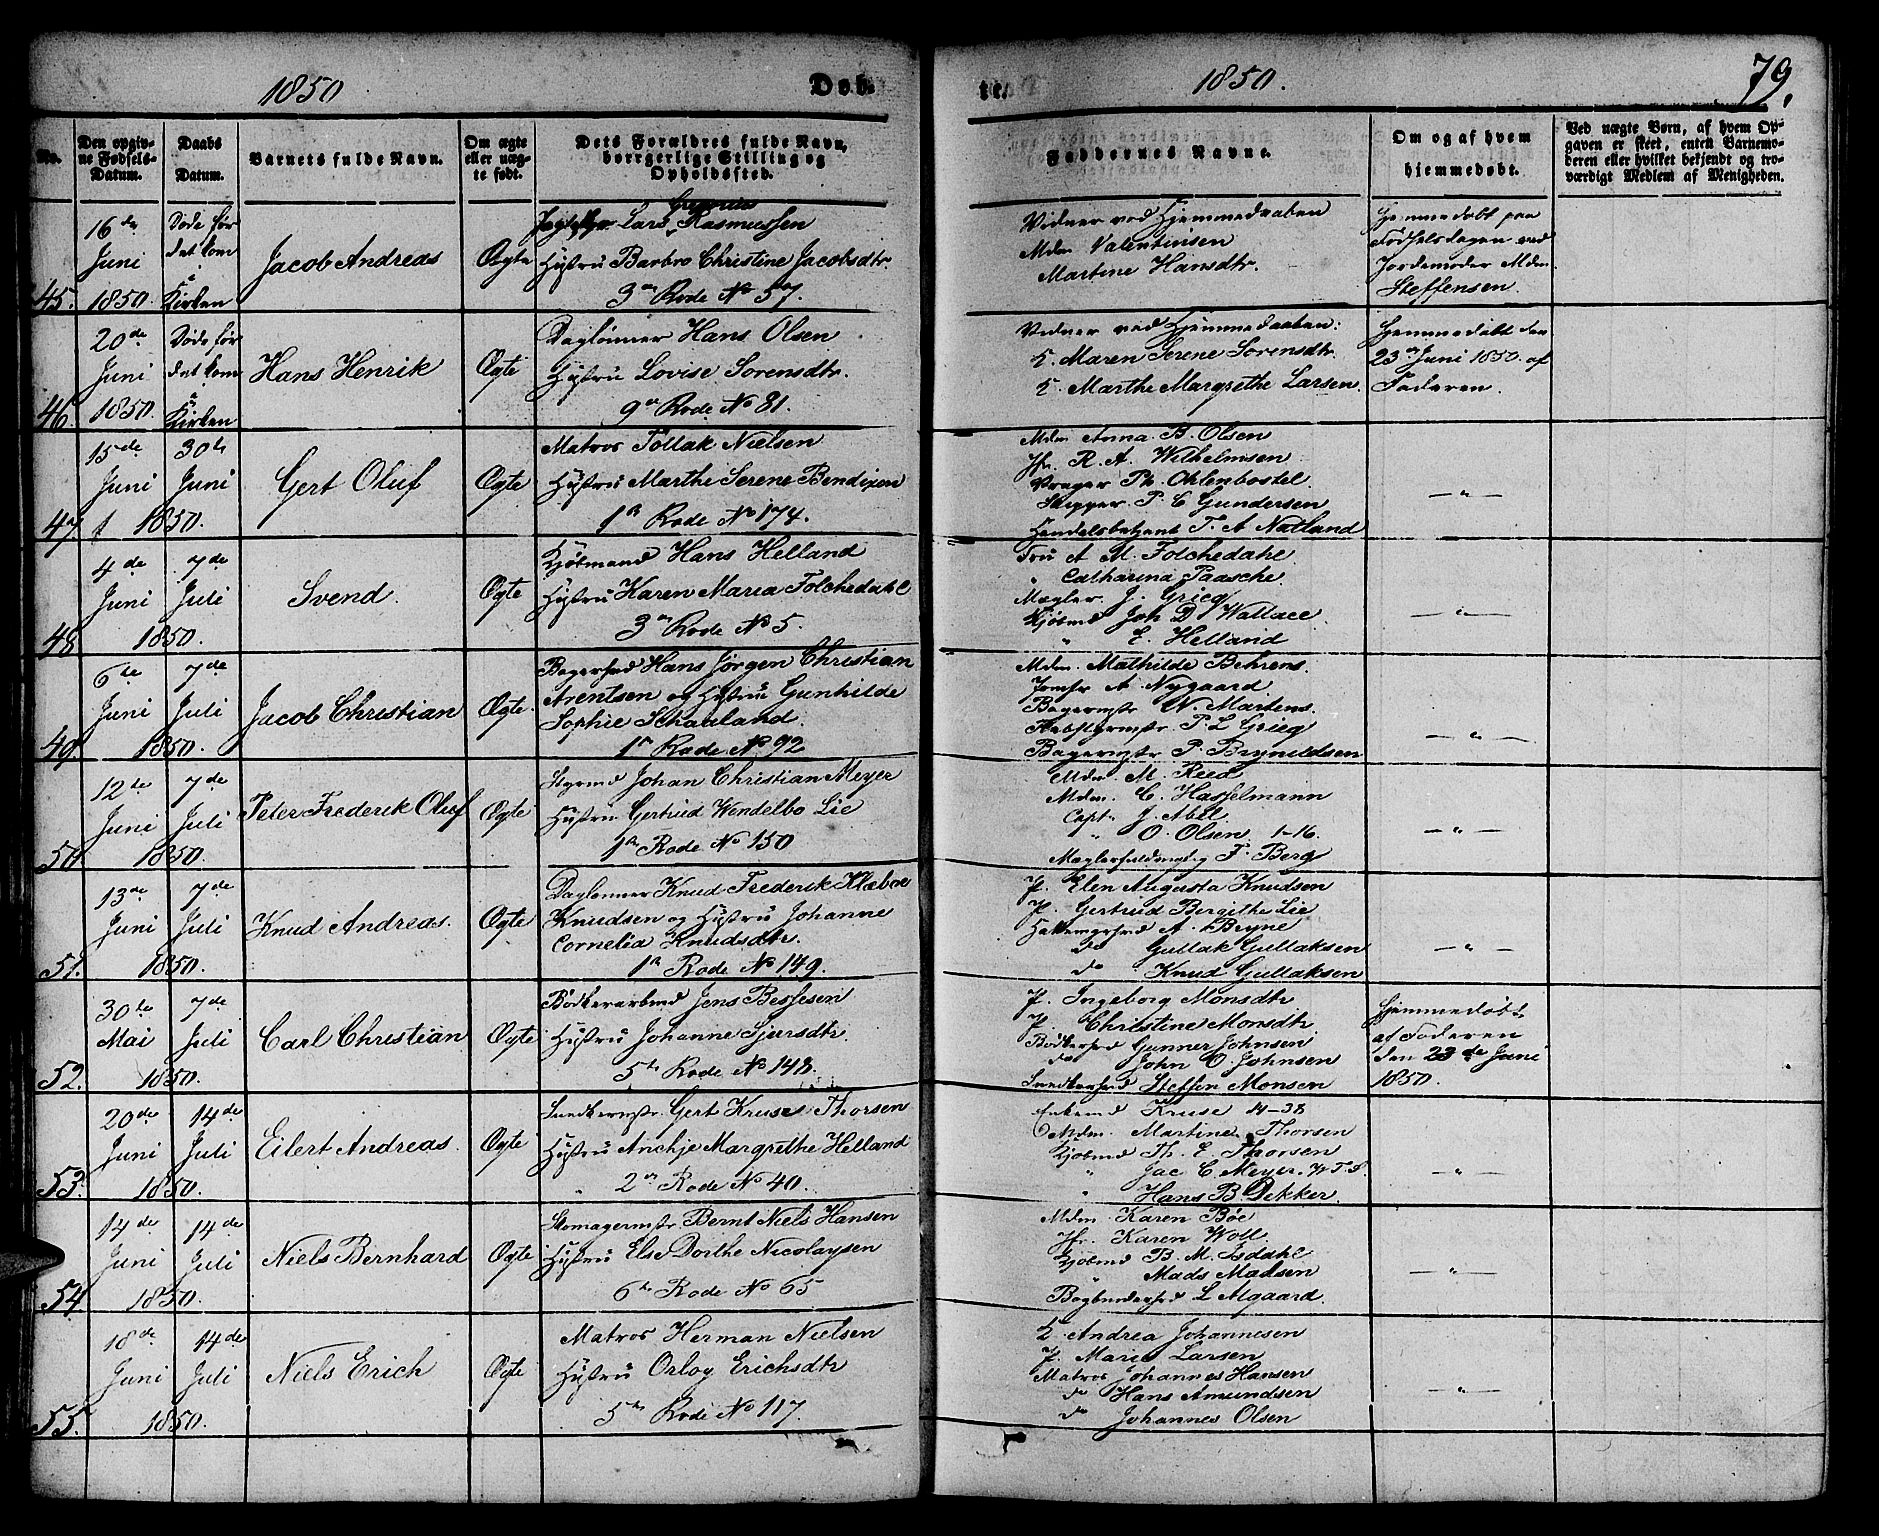 1850 Døb-
te. 1850. 79.
No. Den opgiv-
ne Fødsels-
Datum. Daabs
Datum. Barnets fulde Navn. Om ægte
eller uæg-
te født. Dets Forældres fulde Navn,
borrgerlige Stilling og
Opholdssted. Faddernes Navne. Om og af hvem
hiemmedøbt. Ved uægte Børn, af hvem Op-
gaven er skeet, enten Barnemo-
deren eller hvilket bekjendt og tro-
værdigt Medlem af Menigheden.
45. 16de
Juni
1850.
Døde før
det kom
i
Kirken
Jacob Andreas
Ægte
Lars Rasmussen
Hustru Barbro Christine Jacobsdtr.
3die Rode No 57.
Vidner ved Hjemmedaaben
Mdm Valentinsen
Martine Hansdtr.
Hjemmedøbt paa
Fødselsdagen ved
Jordemoder Mdm.
Steffensen.
46. 20de
Juni
1850.
Døde før
det kom
i
Kirken
Hans Henrik
Ægte
Daglønner Hans Olsen
Hustru Lovise Sørensdtr.
9de Rode No 81.
Vidner ved Hjemmedaaben:
K. Maren Serene Sørensdtr.
K. Marthe Margrethe Larsen.
Hjemmedøbt den
23de Juni 1850. af
Faderen.
47 15de
Juni
30te
Juni
1850.
Gert Oluf
Ægte
Matros Tollak Nielsen
Hustru Marthe Serene Bendixen
1te Rode No 174.
Mdm Anna. B. Olsen
Jfr. R. A. Wilhelmsen
Vrager Th. Ohlenbostel.
Skipper P. C Gundersen
Handelsbetjent T. A Natland
—"—
48 4de
Juni
7de
Juli
1850.
Svend.
Ægte
Kjøbmand Hans Helland
Hustru Karen Maria Folchedahl
3die Rode No 5.
Fru A M. Folchedahl
" Catharina Paasche.
Mægler J. Grieg
Kjøbmd Joh D Wallace.
" E. Helland
—"—
49. 6te
Juni
7de
Juli
1850.
Jacob Christian
Ægte
Bagersvd Hans Jørgen Christian
Arentsen og Hustru Gunhilde
Sophie Schaaland.
1te Rode No 92
Mdm. Mathilde Behrens.
Jomfr A Nygaard
Bagermstr W. Martens.
P. L Grieg
Bagermstr P. Brynildsen
—"—
50. 12te
Juni
7de
Juli
1850.
Peter Frederik Oluf
Ægte
Styrmd Johan Christian Meyer
Hustru Gertrud Wendelbo Lie
1te Rode No 150
Mdm M. Reed
Mdm. C. Hasselmann
Capt. J. Abel
" O. Olsen 1-16.
Mæglerfuldmgtig F. Berg
—"—
51. 13de
Juni
7de
Juli
1850.
Knud Andreas.
Ægte
Daglønner Knud Frederik Klæboe
Knudsen og Hustru Johanne
Cornelia Knudsdtr.
1te Rode No 149.
P. Elen Augusta Knudsen
P. Gertrud Bergithe Lie
A. Bryne
do Gullak Gullaksen
do Knud Gullaksen
—"—
52. 30te
Mai
7de
Juli
1850.
Carl Christian
Ægte
Bødkerarbmd Jens Bessesen
Hustru Johanne Sjursdtr.
5te Rode No 148.
P. Ingeborg Monsdtr
P. Christine Monsdtr.
Bødkersvd Gunner Johnsen
do John O. Johnsen
Snedkersvd Steffen Monsen
Hjemmedøbt
af Faderen
den 23de Juni
1850.
53. 20de
Juni
14de
Juli
1850.
Eilert Andreas.
Ægte
Snedkermstr. Gert Kruse Thorsen
Hustru Anchje Margrethe Helland
2den Rode No 40.
Enkemd Kruse 14-38
Mdm. Martine Thorsen
Kjøbmd Th. E. Thorsen
" Jac C. Meyer. W.T.S.
" Hans B. Dekker.
—"—
54 14de
Juni
14de
Juli
1850.
Niels Bernhard
Ægte
Skomagermstr Bernt Niels Hansen
Hustru Else Dorthe Nicolaysen
6te Rode No 65
Mdm. Karen Bøe
Jfr. Karen Woll
Kjøbmd B. M. Isdahl
" Mads Madsen
Bogbindersvd L Algaard.
—"—
55. 18de
Juni
14de
Juli
1850.
Niels Erich
Ægte
Matros Herman Nielsen
Hustru Orlog Erichsdtr
5te Rode No 117.
K. Andrea Johannesen
P. Marie Larsen
Matros Johannes Hansen
do Hans Amundsen
do Johannes Olsen
—"—